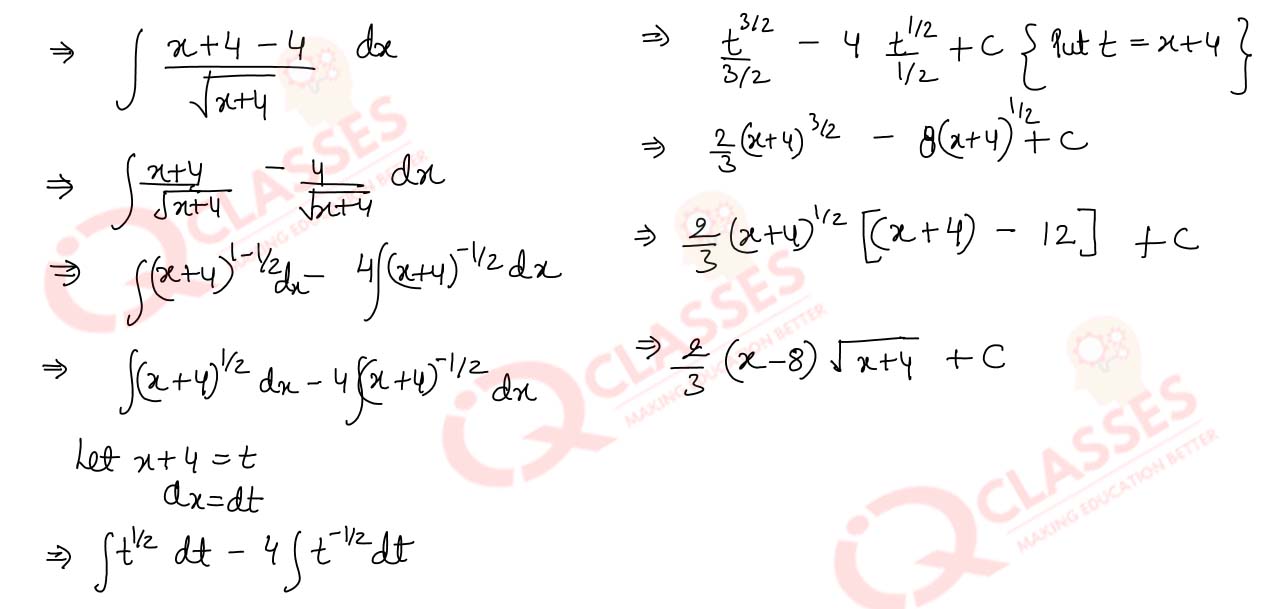 ⇒ ∫ (x+4-4)/√(x+4) dx
⇒ ∫ (x+4)/√(x+4) - 4/√(x+4) dx
⇒ ∫(x+4)^(1-1/2) dx - 4∫(x+4)^(-1/2) dx
⇒ ∫(x+4)^(1/2) dx - 4∫(x+4)^(-1/2) dx
Let x+4 = t
dx = dt
⇒ ∫t^(1/2) dt - 4∫t^(-1/2) dt
⇒ t^(3/2)/(3/2) - 4 t^(1/2)/(1/2) + C {Put t = x+4}
⇒ 2/3 (x+4)^(3/2) - 8(x+4)^(1/2) + C
⇒ 2/3 (x+4)^(1/2) [(x+4) - 12] + C
⇒ 2/3 (x-8) √(x+4) + C
IQ CLASSES
MAKING EDUCATION BETTER
IQ CLASSES
MAKING EDUCATION BETTER
IQ CLASSES
MAKING EDUCATION BETTER